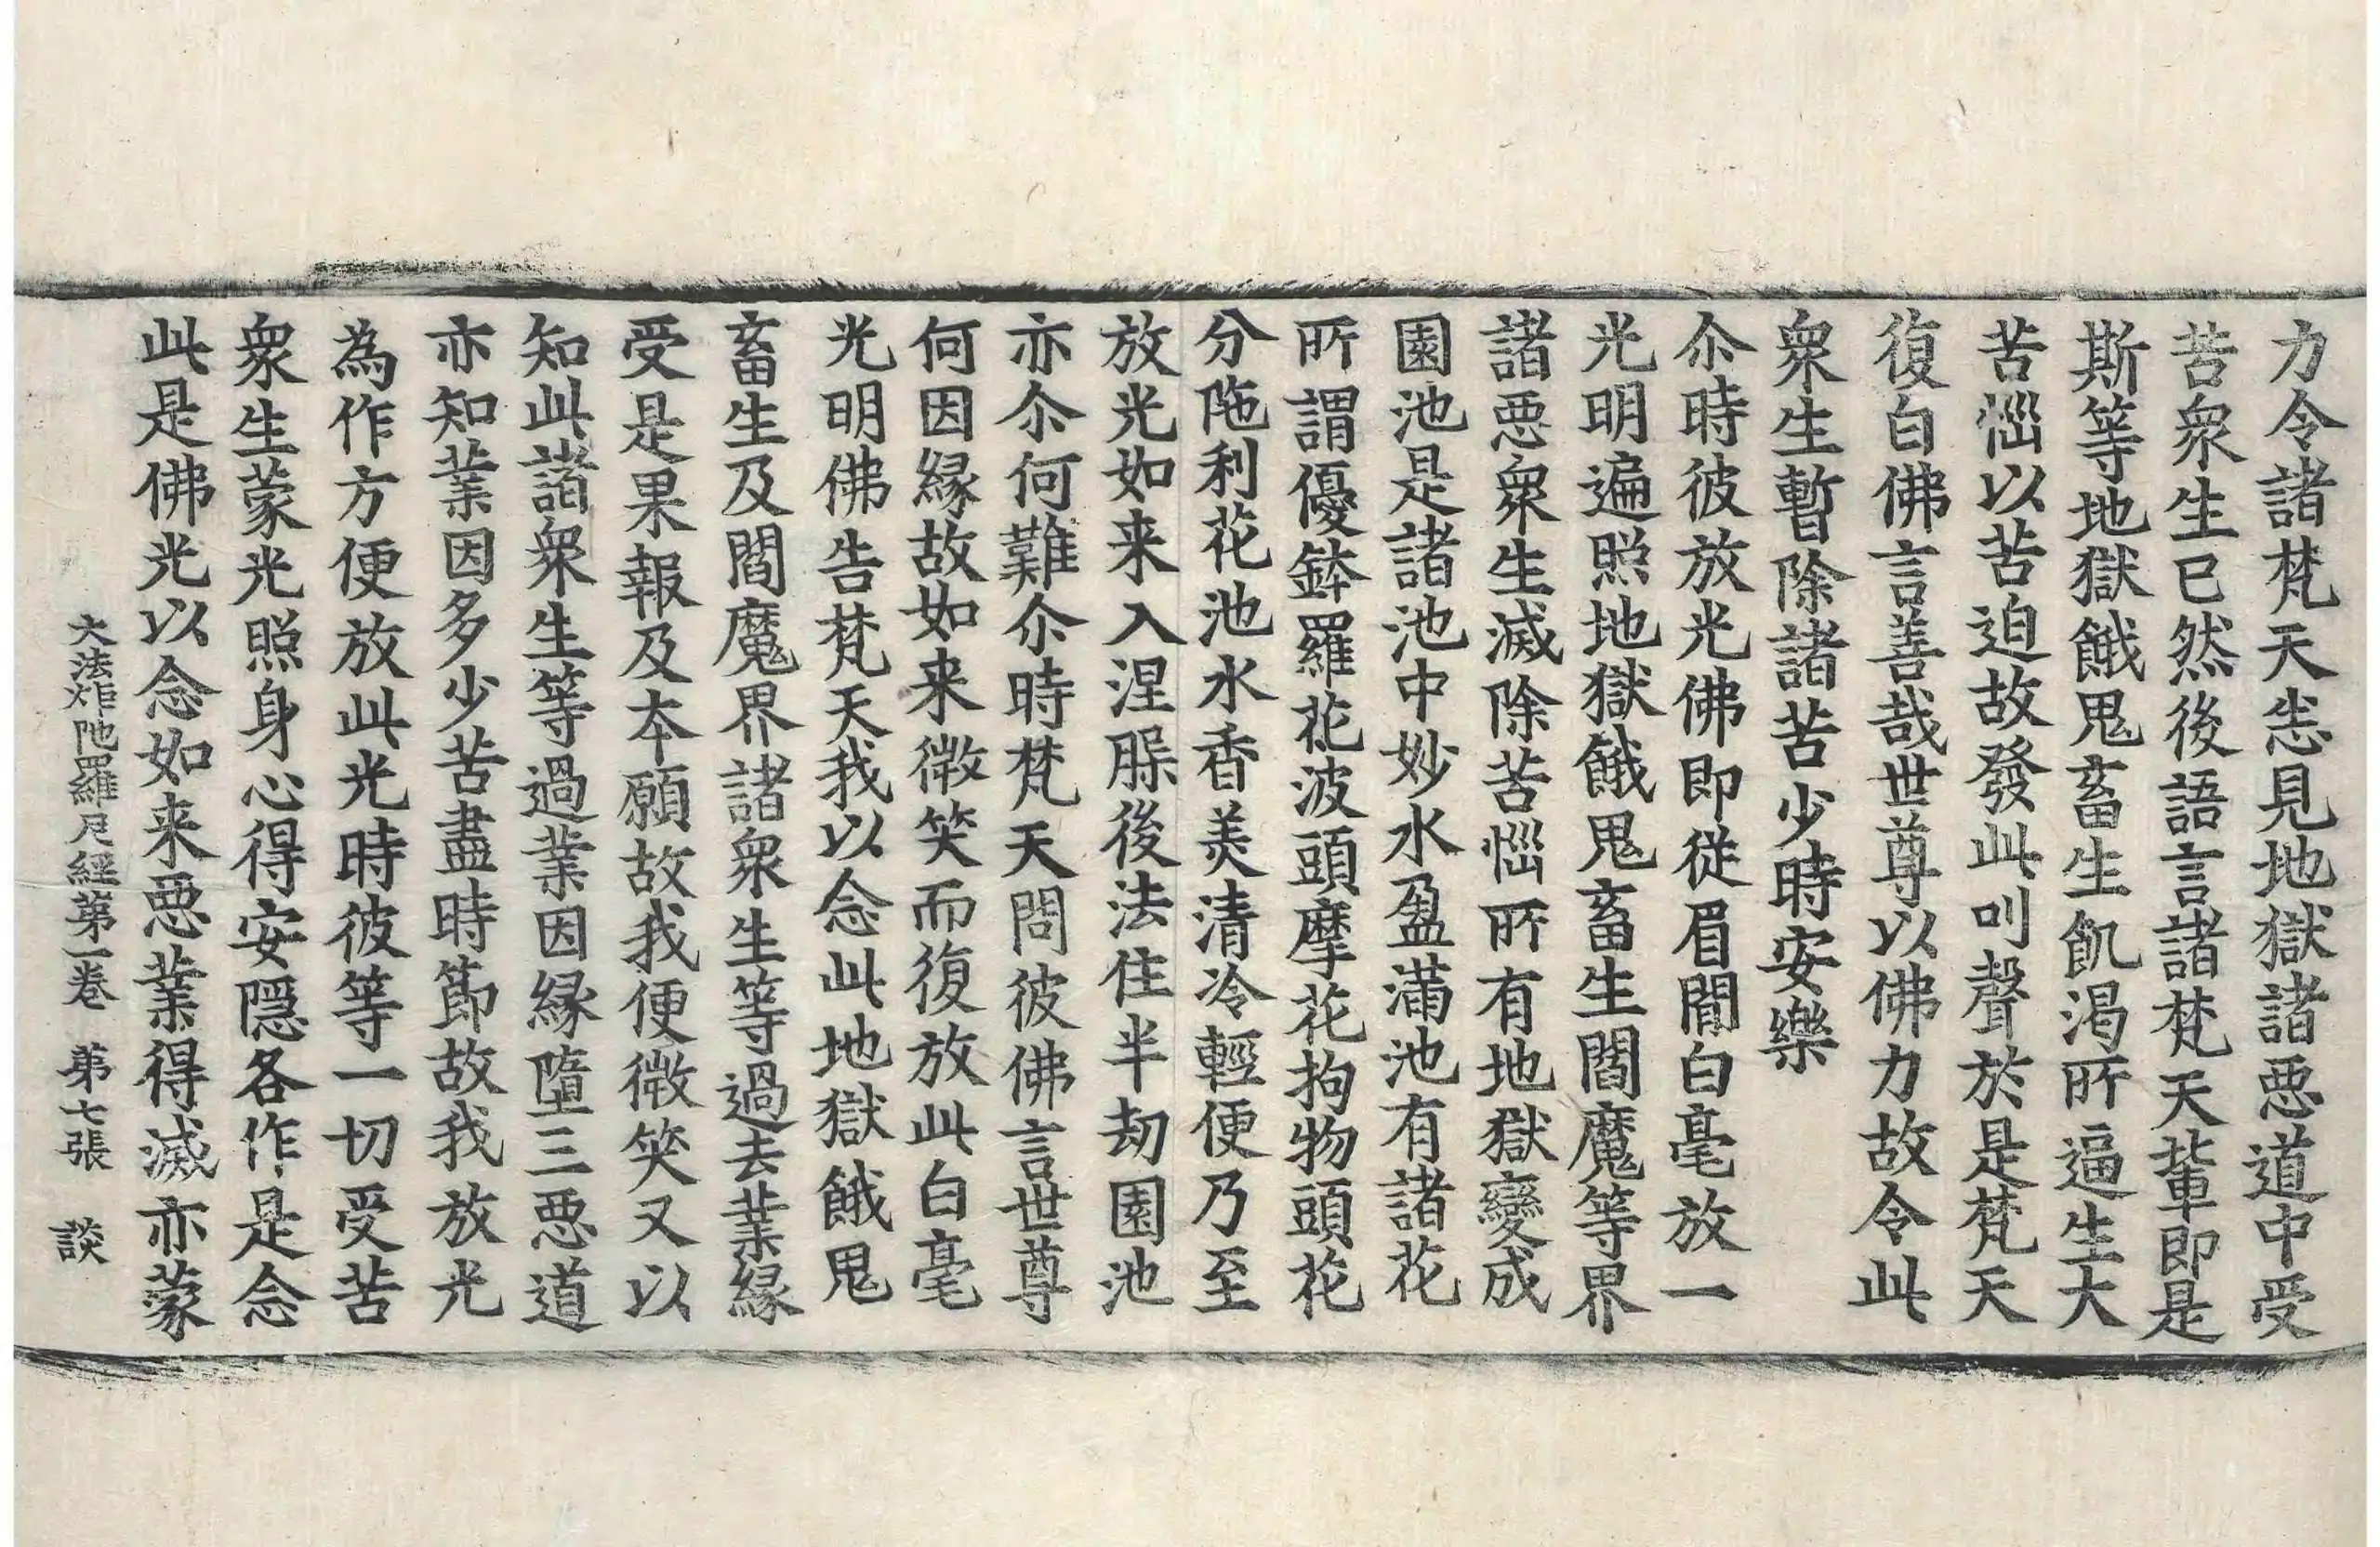 力令諸梵天㤀見地獄諸悪道中受
苦衆生已然後語言諸梵天輩即是
斯等地獄餓鬼畜生飢渴所逼生大
苦惱以苦迫故發此叫聲於是梵天
復白佛言善哉世尊以佛力故令此
衆生暫除諸苦少時安樂
尒時彼放光佛即從眉間白毫放一
光明遍照地獄餓鬼畜生閻魔等界
諸悪衆生滅除苦惱所有地獄變成
園池是諸池中妙水盈滿池有諸花
所謂優鉢羅花波頭摩花拘物頭花
分陁利花池水香美清冷輕便乃至
放光如来入涅槃後法住半劫園池
亦尒何難尒時梵天問彼佛言世尊
何因縁故如来微笑而復放此白毫
光明佛告梵天我以念此地獄餓鬼
畜生及閻魔界諸衆生等過去業縁
受是果報及本願故我便微笑又以
知此諸衆生等過業因縁墮三悪道
亦知業因多少苦盡時節故我放光
為作方便放此光時彼等一切受苦
衆生蒙光照身心得安隱各作是念
此是佛光以念如来悪業得滅亦蒙
大法炬陁羅尼經第一卷　第七張　談